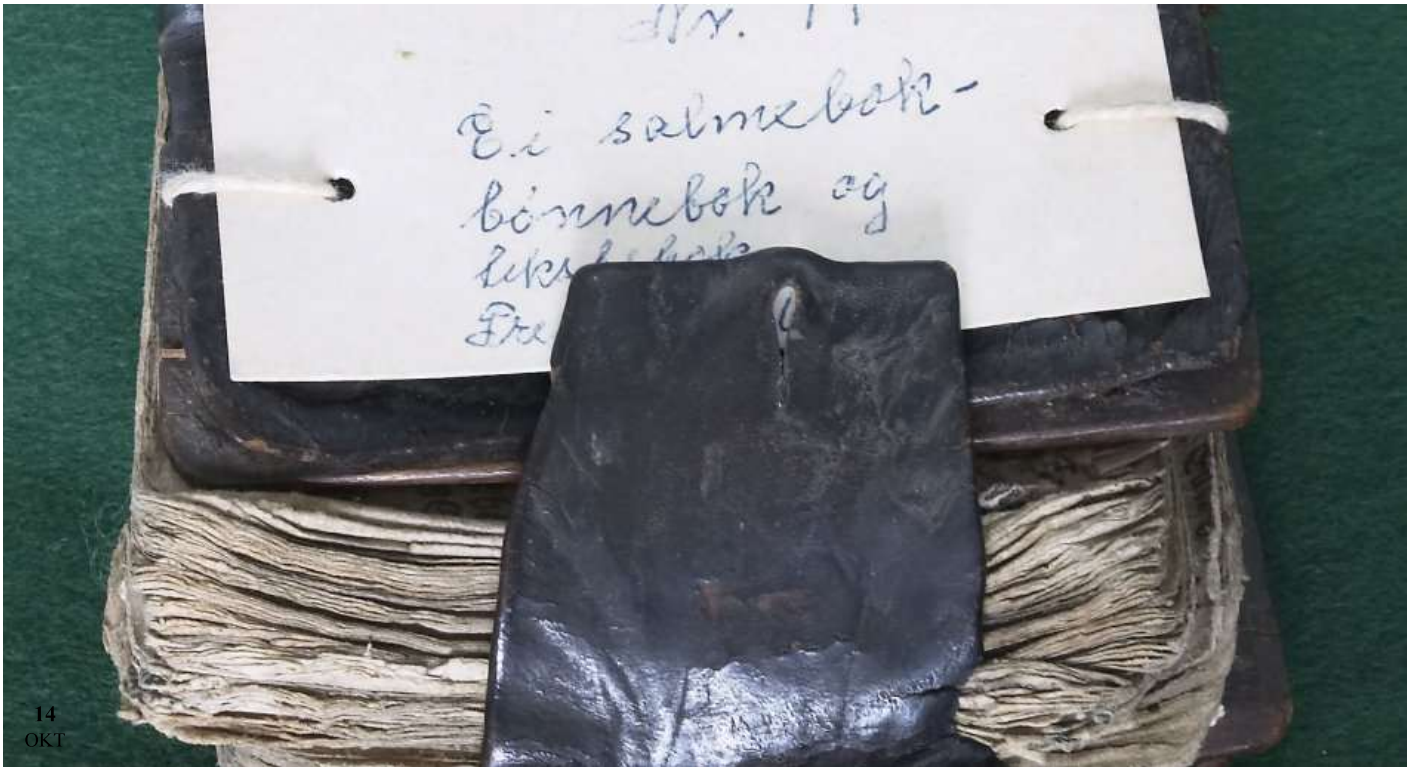 Nr.
Ei salmebok-
bønnebok og
14
OKT